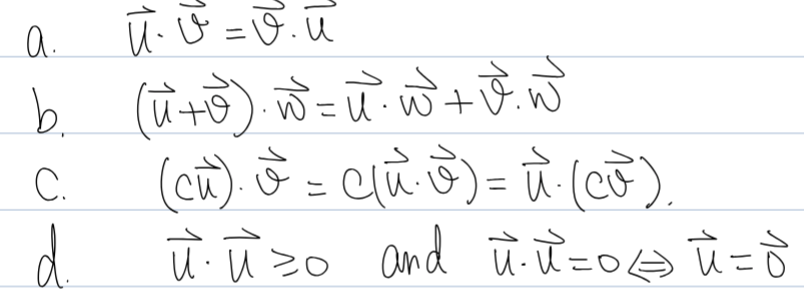 a. $\vec{u} \cdot \vec{v} = \vec{v} \cdot \vec{u}$
b. $(\vec{u} + \vec{v}) \cdot \vec{w} = \vec{u} \cdot \vec{w} + \vec{v} \cdot \vec{w}$
c. $(c\vec{u}) \cdot \vec{v} = c(\vec{u} \cdot \vec{v}) = \vec{u} \cdot (c\vec{v}).$
d. $\vec{u} \cdot \vec{u} \geq 0$ and $\vec{u} \cdot \vec{u} = 0 \Leftrightarrow \vec{u} = \vec{0}$